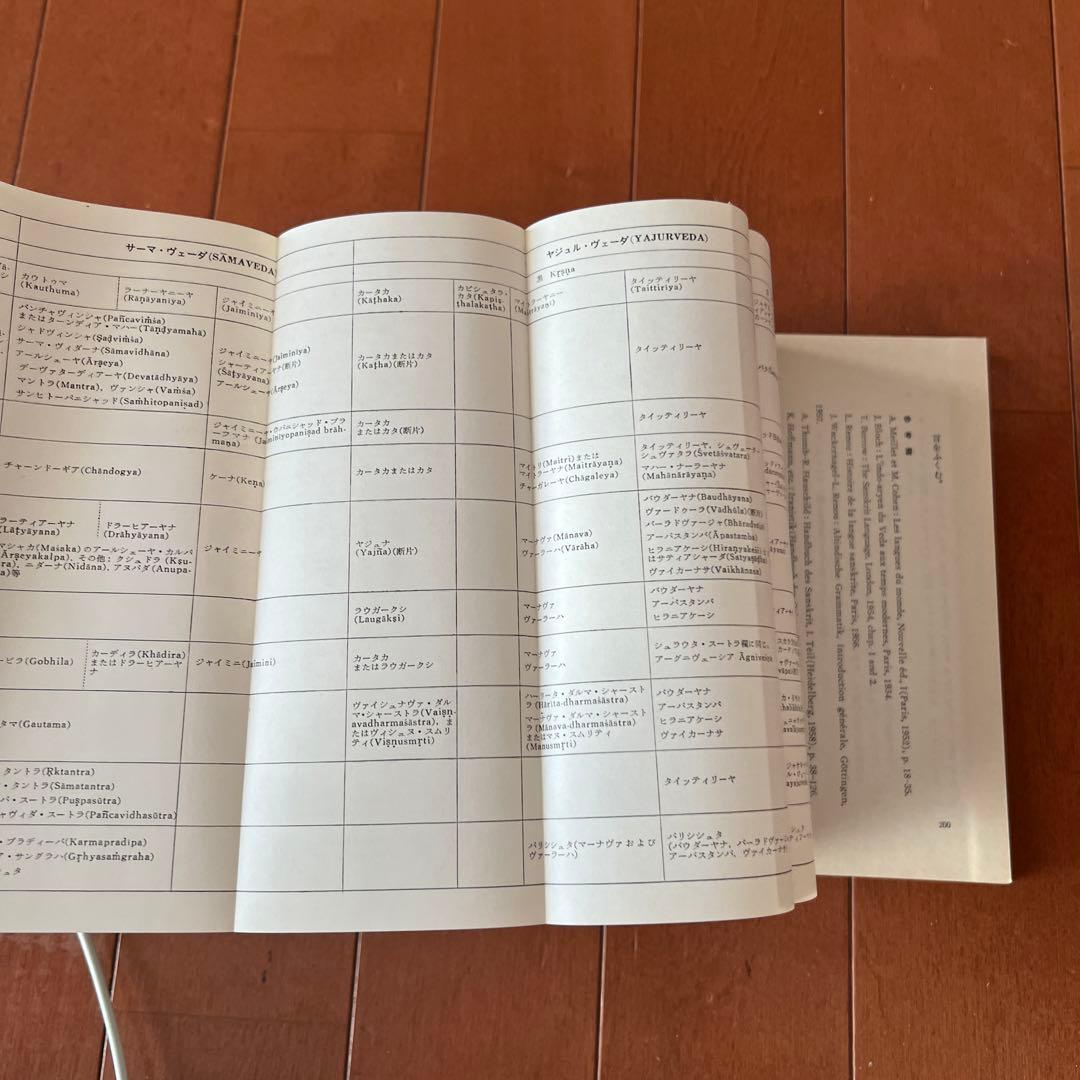 サーマ・ヴェーダ(SĀMAVEDA)
カウトゥマ
(Kauthuma)
ラーナーヤニーヤ
(Rāṇāyaniya)
ジャイミニーヤ
(Jaiminiya)
パンチャヴィンシャ(Pañcaviṁśa)
またはターンディア・マハー(Tāṇḍyamahā)
シャドヴィンシャ(Ṣaḍviṁśa)
サーマ・ヴィダーナ(Sāmavidhāna)
アールシェーヤ(Ārṣeya)
デーヴァターディアーヤ(Devatādhyāya)
マントラ(Mantra), ヴァンシャ(Vaṁśa)
サンヒトーパニシャッド(Saṁhitopaniṣad)
ジャイミニーヤ(Jaiminiya)
シャーティアーヤナ(断片)
(Śāṭyāyana)
アールシェーヤ(Ārṣeya)
チャーンドーギア(Chāndogya)
ケーナ(Kena)
ラーティアーヤナ
(Lāṭyāyana)
ドラーヒアーヤナ
(Drāhyāyana)
マシャカ(Maśaka)のアールシェーヤ・カルパ
(Ārṣeyakalpa), その他: クシュドラ(Kṣu-
ra), ニダーナ(Nidāna), アヌパダ(Anupa-
da)等
ジャイミニーヤ
ービラ(Gobhila)
カーディラ(Khādira)
またはドラーヒアーヤ
ナ
ジャイミニ(Jaimini)
タマ(Gautama)
タントラ(Ṛktantra)
・タントラ(Sāmatantra)
パ・スートラ(Puṣpasūtra)
チャヴィダ・スートラ(Pañcavidhasūtra)
・プラディーパ(Karmapradipa)
ア・サングラハ(Gṛhyasaṁgraha)
シュタ
ヤジュル・ヴェーダ(YAJURVEDA)
黒 Kṛṣṇa
カータカ
(Kāṭhaka)
カピシュタラ・
カタ(Kapiṣ-
ṭhalakaṭha)
マイトラーヤニー
タイッティリーヤ
(Taittiriya)
カータカまたはカタ
(Kaṭha)(断片)
タイッティリーヤ
カータカ
またはカタ(断片)
タイッティリーヤ
カータカまたはカタ
マイトリ(Maitri)または
マイトラーヤナ(Maitrāyaṇa)
チャーガレーヤ(Chāgaleya)
タイッティリーヤ, シュヴェーター
シュヴァタラ(Śvetāśvatara)
マハー・ナーラーヤナ
(Mahānārāyaṇa)
ヤジュナ
(Yajña)(断片)
マーナヴァ(Mānava)
ヴァーラーハ(Vārāha)
バウダーヤナ(Baudhāyana)
ヴァードゥーラ(Vādhūla)(断片)
バーラドヴァージャ(Bhāradvāja)
アーパスタンバ(Āpastamba)
ヒラニアケーシ(Hiraṇyakeśi)また
はサティアシャーダ(Satyaṣāḍha)
ヴァイカーナサ(Vaikhānasa)
ラウガークシ
(Laugākṣi)
マーナヴァ
ヴァーラーハ
バウダーヤナ
アーパスタンバ
ヒラニアケーシ
カータカ
またはラウガークシ
マーナヴァ
ヴァーラーハ
シュラウタ・スートラ欄に同じ,
アーグニヴェーシア Āgniveśya
ヴァイシュナヴァ・ダル
マ・シャーストラ(Vaiṣṇ-
avadharmaśāstra), ま
たはヴィシュヌ・スムリ
ティ(Viṣṇusmṛti)
ハーリータ・ダルマ・シャースト
ラ(Hārita-dharmaśāstra)
マーナヴァ・ダルマ・シャースト
ラ(Mānava-dharmaśāstra)
またはマヌ・スムリティ
(Manusmṛti)
バウダーヤナ
アーパスタンバ
ヒラニアケーシ
ヴァイカーナサ
タイッティリーヤ
パリシシュタ(マーナヴァおよび
ヴァーラーハ)
パリシシュタ
(バウダーヤナ, バーラドヴァージャ
アーパスタンバ, ヴァイカーナサ)
参考書
A. Meillet et M. Cohen: Les langues du monde, Nouvelle éd., I (Paris, 1952), p. 18-35.
J. Bloch: L'indo-aryen du Veda aux temps modernes, Paris, 1934.
T. Burrow: The Sanskrit Language, London, 1954, chap. 1 and 2.
L. Renou: Histoire de la langue sanskrite, Paris, 1956.
J. Wackernagel-L. Renou: Altindische Grammatik, Introduction générale, Göttingen,
1957.
A. Thumb-R. Hauschild: Handbuch des Sanskrit, I. Teil (Heidelberg, 1958), p. 38-126.
200